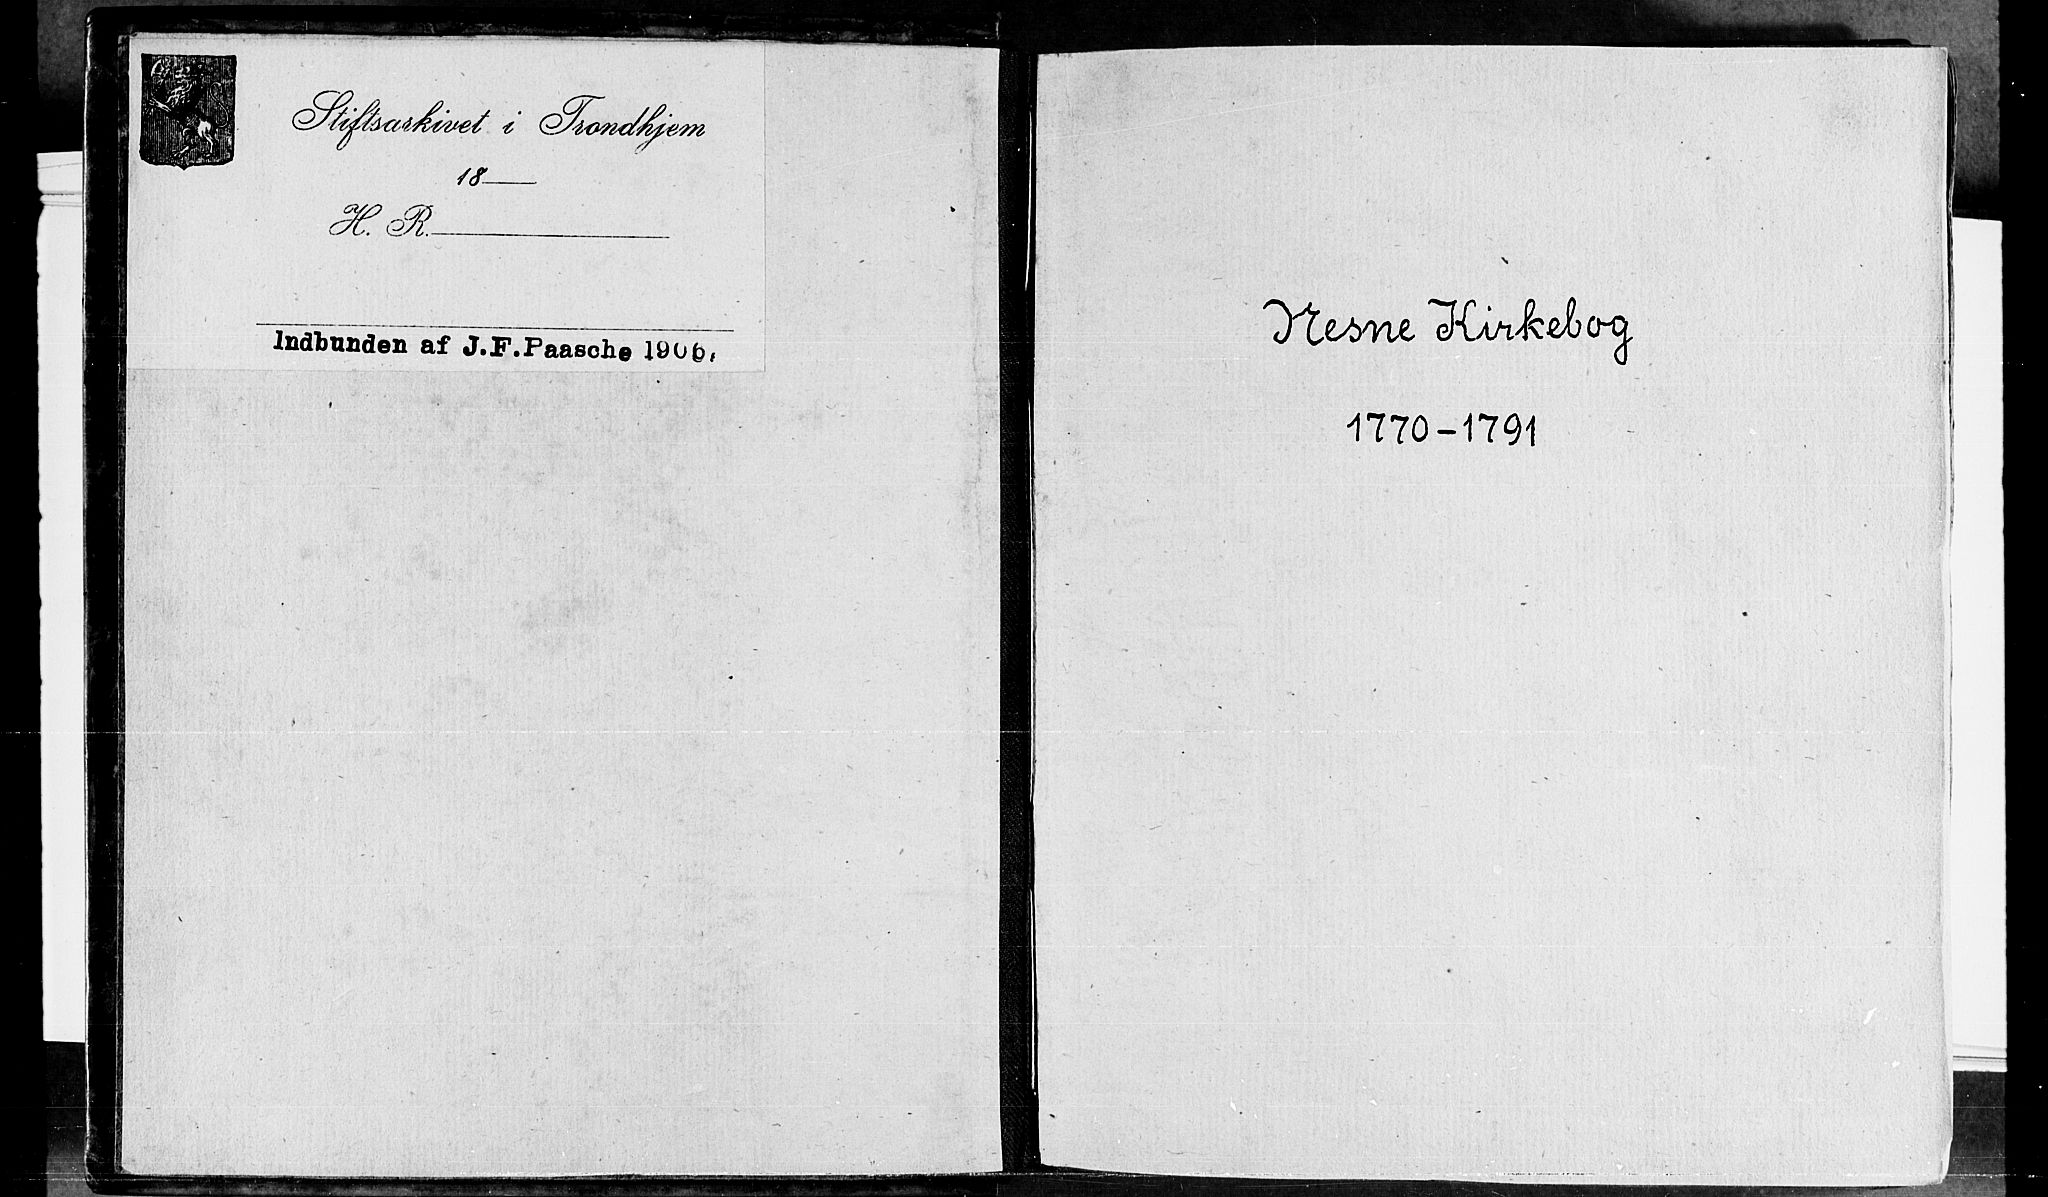 Stiftsarkivet i Trondhjem
18
H. R.
Indbunden af J.F.Paasche 1906.
Nesne Kirkebog
1770-1791